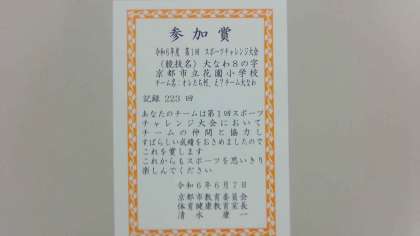 参加賞
令和6年度 第1回 スポーツチャレンジ大会
(競技名) 大なわ8の字
京都市立花園小学校
記録 223 回
あなたのチームは第1回スポーツ
チャレンジ大会において
チームの仲間と協力し
すばらしい成績をおさめましたので
これを賞します
これからもスポーツを思いきり
楽しんでください
令和6年6月7日
京都市教育委員会
体育健康教育室長
清水 康一